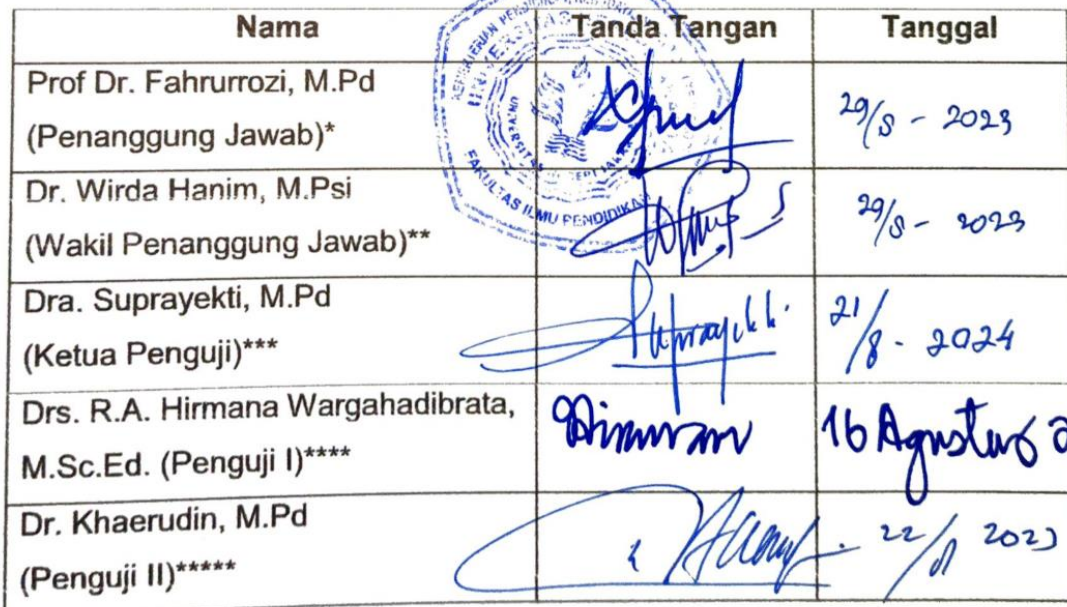 Nama Tanda Tangan Tanggal
Prof Dr. Fahrurrozi, M.Pd
(Penanggung Jawab)*
29/8 - 2023
Dr. Wirda Hanim, M.Psi
(Wakil Penanggung Jawab)**
29/8 - 2023
Dra. Suprayekti, M.Pd
(Ketua Penguji)***
Suprayekti.
21/8 - 2024
Drs. R.A. Hirmana Wargahadibrata,
M.Sc.Ed. (Penguji I)****
16 Agustus 2
Dr. Khaerudin, M.Pd
(Penguji II)*****
22/8 2023
FAKULTAS ILMU PENDIDIKAN